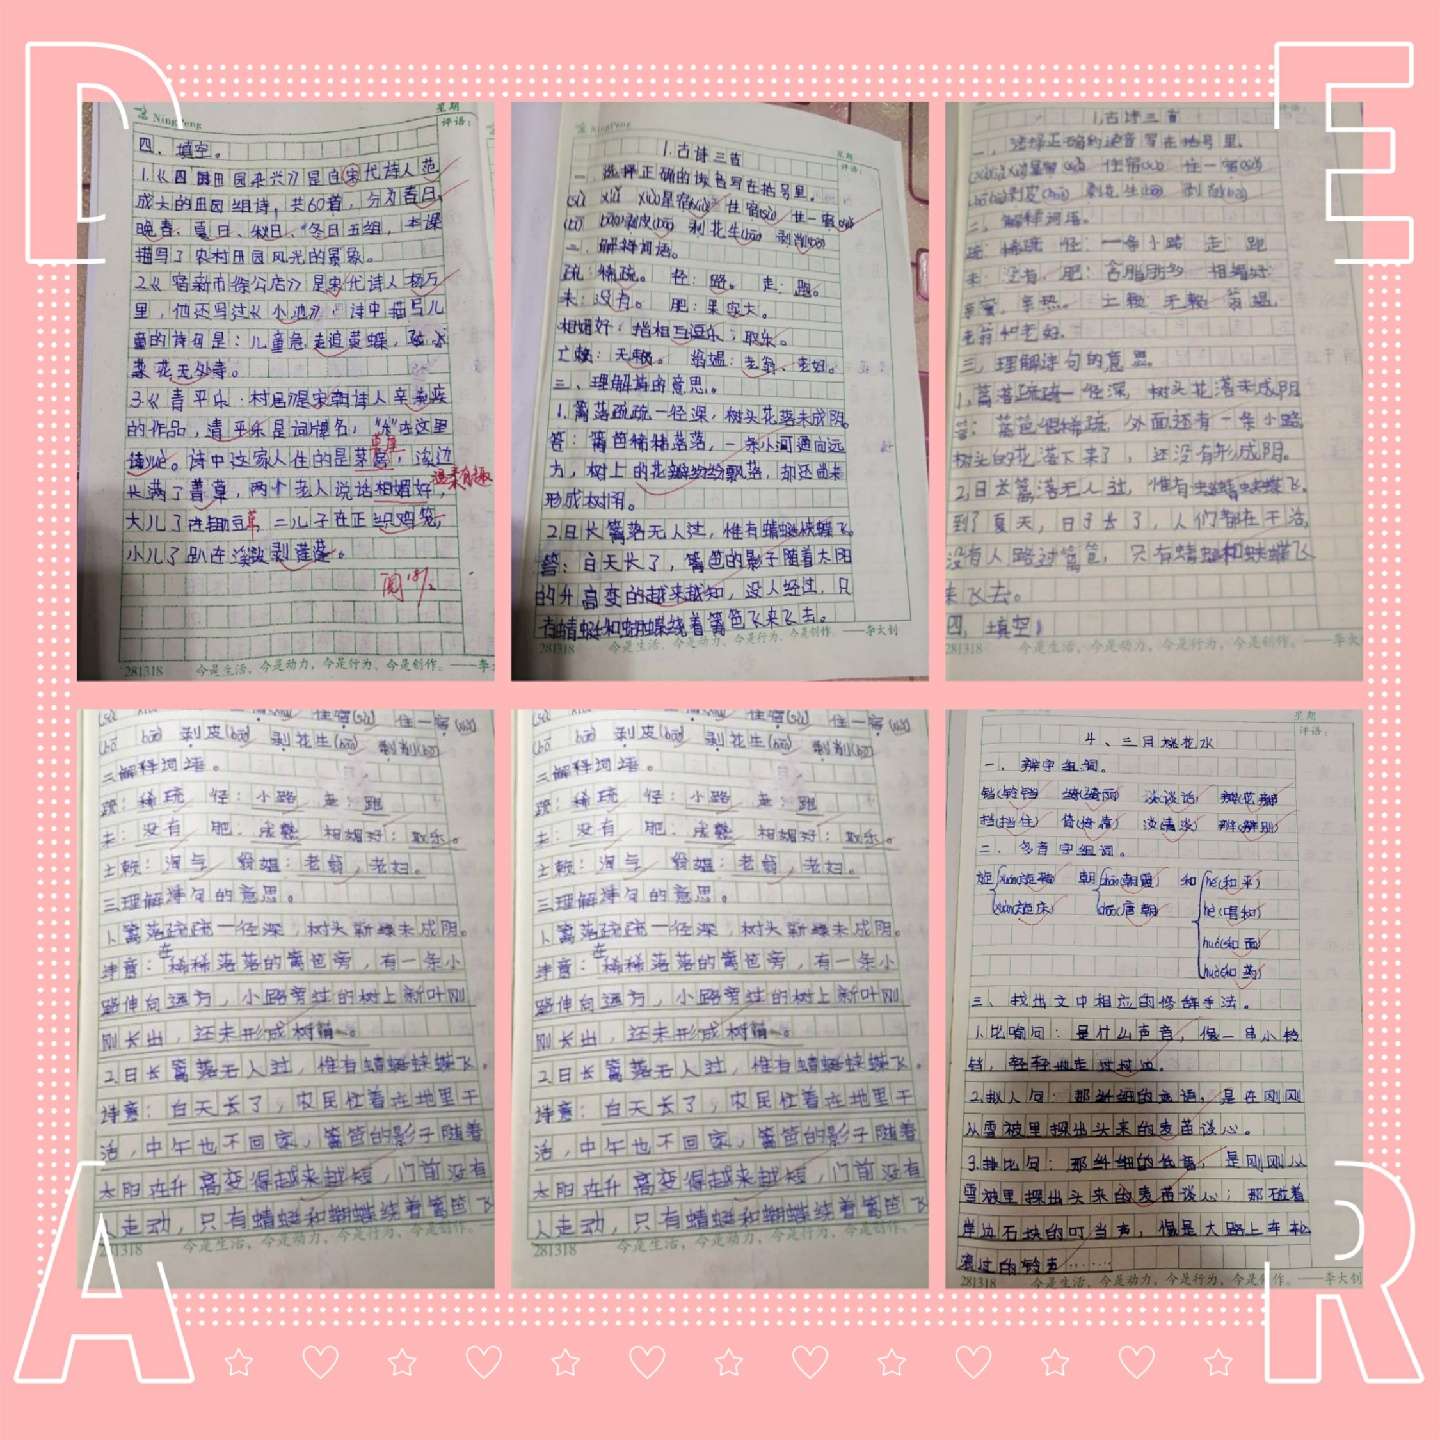 DEAR
NingPeng
星期
评语：
四、填空。
1.《四时田园杂兴》是由宋代诗人范
成大的田园组诗，共60首，分为春日、
晚春、夏日、秋日、冬日五组，本课
描写了农村田园风光的景象。
2.《宿新市徐公店》是宋代诗人杨万
里，他还写过《小池》，诗中描写儿
童的诗句是：儿童急走追黄蝶，飞入
菜花无处寻。
3.《清平乐·村居》是宋朝诗人辛弃疾
的作品，清平乐是词牌名，
诗中这家人住的是茅
长满了青草，两个老人说话相媚好，
大儿子在锄豆草，二儿子在正织鸡笼，
小儿子趴在 剥莲蓬。
阅
281318 今是生活，今是动力，今是行为，今是创作。——李大
NingPeng
星期
评语：
1.古诗三首
一、选择正确的拨音写在括号里。
二、解释词语。
疏：稀疏。 径：路。 走：跑。
未：没有。 肥：果实大。
相媚好：指相互逗乐；取乐。
亡赖：无赖。 翁媪：老翁、老妇。
三、理解诗的意思。
1.篱落疏疏一径深，树头花落未成阴。
答：篱笆稀稀落落，一条小河通向远
方，树上的花瓣纷纷飘落，却还尚未
形成树阴。
2.日长篱落无人过，惟有蜻蜓蛱蝶飞。
答：白天长了，篱笆的影子随着太阳
的升高变的越来越短，没人经过，只
有蜻蜓和蝴蝶绕着篱笆飞来飞去。
281318 今是生活，今是动力，今是行为，今是创作。——李大钊
评语：
1.古诗三首
一、选择正确的读音写在括号里。
二、解释词语。
疏：稀疏 径：一条小路 走：跑
未：没有 肥：含脂肪多 相媚好：
亲蜜，亲热。 亡赖：无赖 翁媪：
老翁和老妇。
三、理解诗句的意思。
1.篱落疏疏一径深，树头花落未成阴
答：篱笆很稀疏，外面还有一条小路，
树头的花落下来了，还没有形成阴。
2.日长篱落无人过，惟有蜻蜓蛱蝶飞。
到了夏天，日子长了，人们都在干活，
没有人路过篱笆，只有蜻蜓和蛱蝶飞
来飞去。
四、填空。
281318 今是生活，今是动力，今是行为，今是创作。——李大
二解释词语。
疏：稀疏 径：小路 走：跑
未：没有 肥：成熟 相媚好：取乐。
亡赖：淘气 翁媪：老翁，老妇。
三理解诗句的意思。
1.篱落疏疏一径深，树头新绿未成阴。
诗意：在稀稀落落的篱笆旁，有一条小
路伸向远方，小路旁边的树上新叶刚
刚长出，还未形成树荫。
2.日长篱落无人过，惟有蜻蜓蛱蝶飞。
诗意：白天长了，农民忙着在地里干
活，中午也不回家，篱笆的影子随着
太阳在升高变得越来越短，门前没有
人走动，只有蜻蜓和蝴蝶绕着篱笆飞
281318 今是生活，今是动力，今是行为，今是创作。
二解释词语。
疏：稀疏 径：小路 走：跑
未：没有 肥：成熟 相媚好：取乐。
亡赖：淘气 翁媪：老翁，老妇。
三理解诗句的意思。
1.篱落疏疏一径深，树头新绿未成阴。
诗意：在稀稀落落的篱笆旁，有一条小
路伸向远方，小路旁边的树上新叶刚
刚长出，还未形成树荫。
2.日长篱落无人过，惟有蜻蜓蛱蝶飞。
诗意：白天长了，农民忙着在地里干
活，中午也不回家，篱笆的影子随着
太阳在升高变得越来越短，门前没有
人走动，只有蜻蜓和蝴蝶绕着篱笆飞
281318 今是生活，今是动力，今是行为，今是创作。
星期
评语：
4、三月桃花水
一、辨字组词。
铛(铃铛) 绮(绮丽) 谈(谈话) 瓣(花瓣)
挡(挡住) 倚(倚靠) 淡(清淡) 辨(辨别)
二、多音字组词。
朝 和 (和平)
(唐朝) (唱和)
(和面)
(和药)
三、找出文中相应的修辞手法。
1.比喻句：是什么声音，像一串小铃
铛，轻轻地走过村边。
2.拟人句：那细细的低语，是在刚刚
从雪被里探出头来的麦苗谈心。
3.排比句：那细细的低语，是刚刚从
雪被里探出头来的麦苗谈心；那碰着
岸边石块的叮当声，像是大路上车轮
滚过的铃声……
281318 今是生活，今是动力，今是行为，今是创作。——李大钊